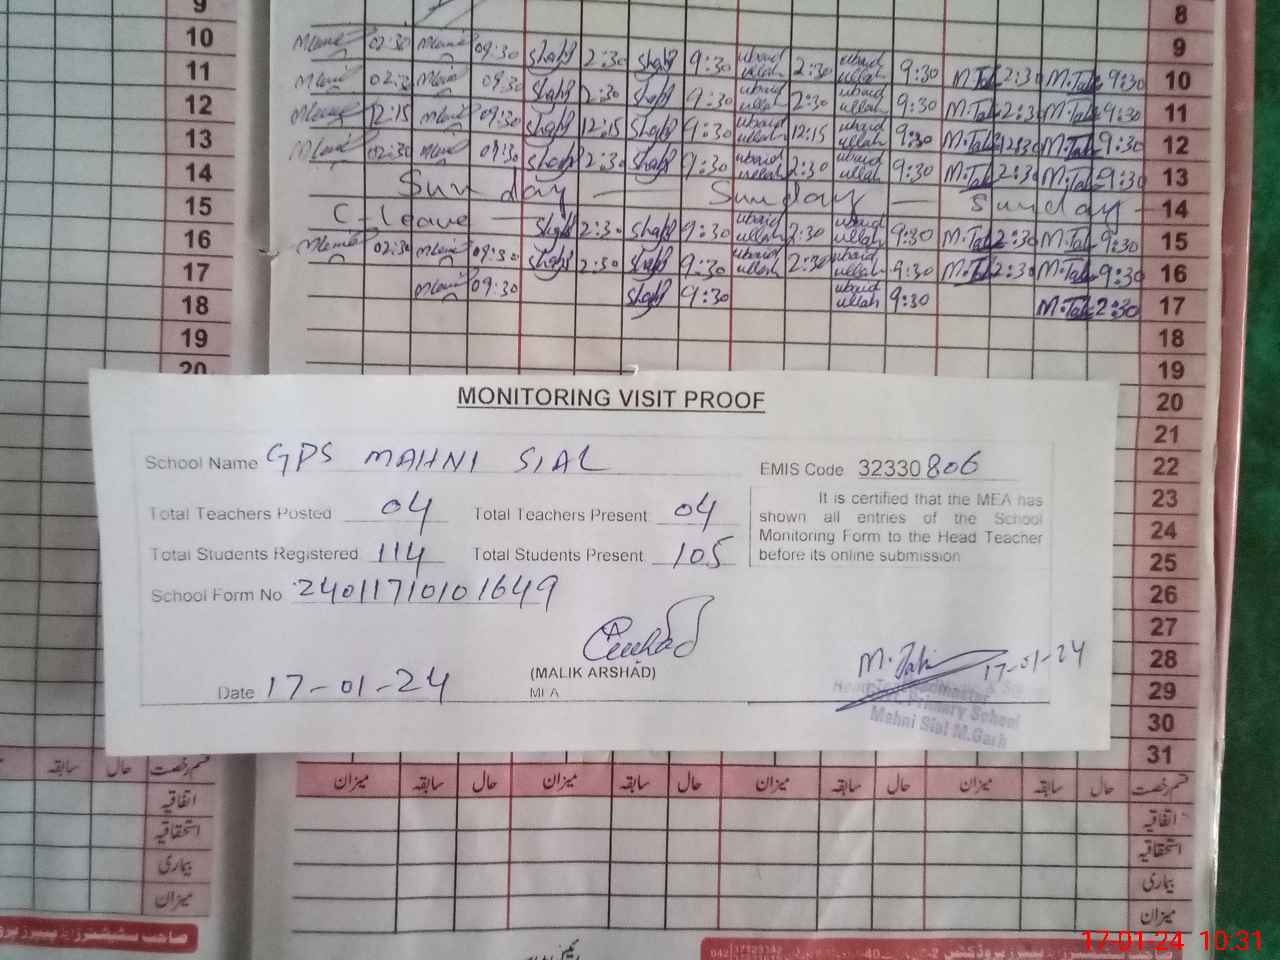 9
10
11
12
13
14
15
16
17
18
19
20
8
02:30 09:30 Shafi 2:30 Shafi 9:30 ubaid ullah 2:30 ubaid ullah 9:30 M.Tah 2:30 M.Tah 9:30 10
02:30 09:30 Shafi 2:30 Shafi 9:30 ubaid ullah 2:30 ubaid ullah 9:30 M.Tah 2:30 M.Tah 9:30 11
12:15 09:30 Shafi 12:15 Shafi 9:30 ubaid ullah 12:15 ubaid ullah 9:30 M.Tah 12:30 M.Tah 9:30 12
02:30 09:30 Shafi 2:30 Shafi 9:30 ubaid ullah 2:30 ubaid ullah 9:30 M.Tah 2:30 M.Tah 9:30 13
Sunday Sunday Sunday 14
C-leave Shafi 2:30 Shafi 9:30 ubaid ullah 2:30 ubaid ullah 9:30 M.Tah 2:30 M.Tah 9:30 15
02:30 09:30 Shafi 2:30 Shafi 9:30 ubaid ullah 2:30 ubaid ullah 9:30 M.Tah 2:30 M.Tah 9:30 16
09:30 Shafi 9:30 ubaid ullah 9:30 M.Tah 2:30 17
18
19
20
21
22
23
24
25
26
27
28
29
30
31
MONITORING VISIT PROOF
School Name GPS MAHNI SIAL
EMIS Code 32330806
Total Teachers Posted 04 Total Teachers Present 04
Total Students Registered 114 Total Students Present 105
School Form No 24011710101649
It is certified that the MEA has
shown all entries of the School
Monitoring Form to the Head Teacher
before its online submission
(MALIK ARSHAD)
MEA
Date 17-01-24
17-01-24
Primary School
Mahni Sial M.Garh
سابقہ حال قسم رخصت
اتفاقیہ
استحقاقیہ
بیماری
میزان
میزان سابقہ حال میزان سابقہ حال میزان سابقہ حال میزان سابقہ حال قسم رخصت
اتفاقیہ
استحقاقیہ
بیماری
میزان
17-01-24 10:31